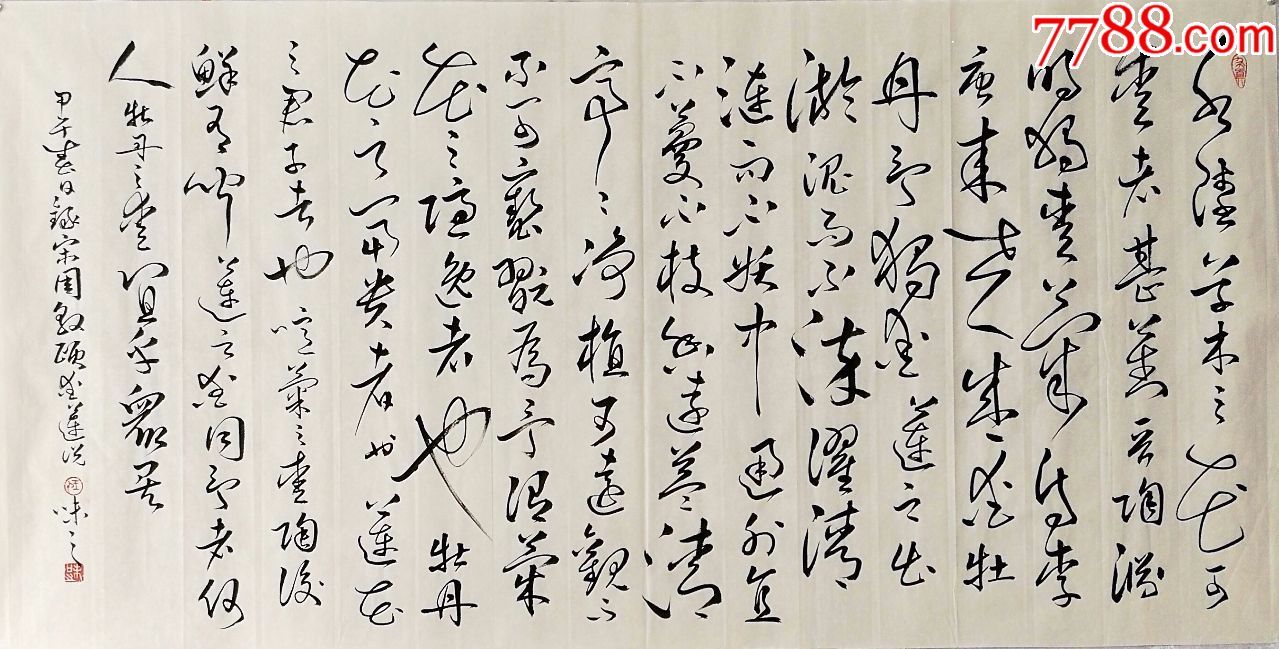 7788.com
水陸草木之花可
愛者甚蕃晉陶淵
明獨愛菊自李
唐來世人盛愛牡
丹予獨愛蓮之出
淤泥而不染濯清
漣而不妖中通外直
不蔓不枝香遠益清
亭〻淨植可遠觀而
不可褻翫焉予謂菊
花之隱逸者也牡丹
花之富貴者也蓮花
之君子者也噫菊之愛陶後
鮮有聞蓮之愛同予者何
人牡丹之愛宜乎眾矣
甲午春日錄宋周敦頤愛蓮說 味之